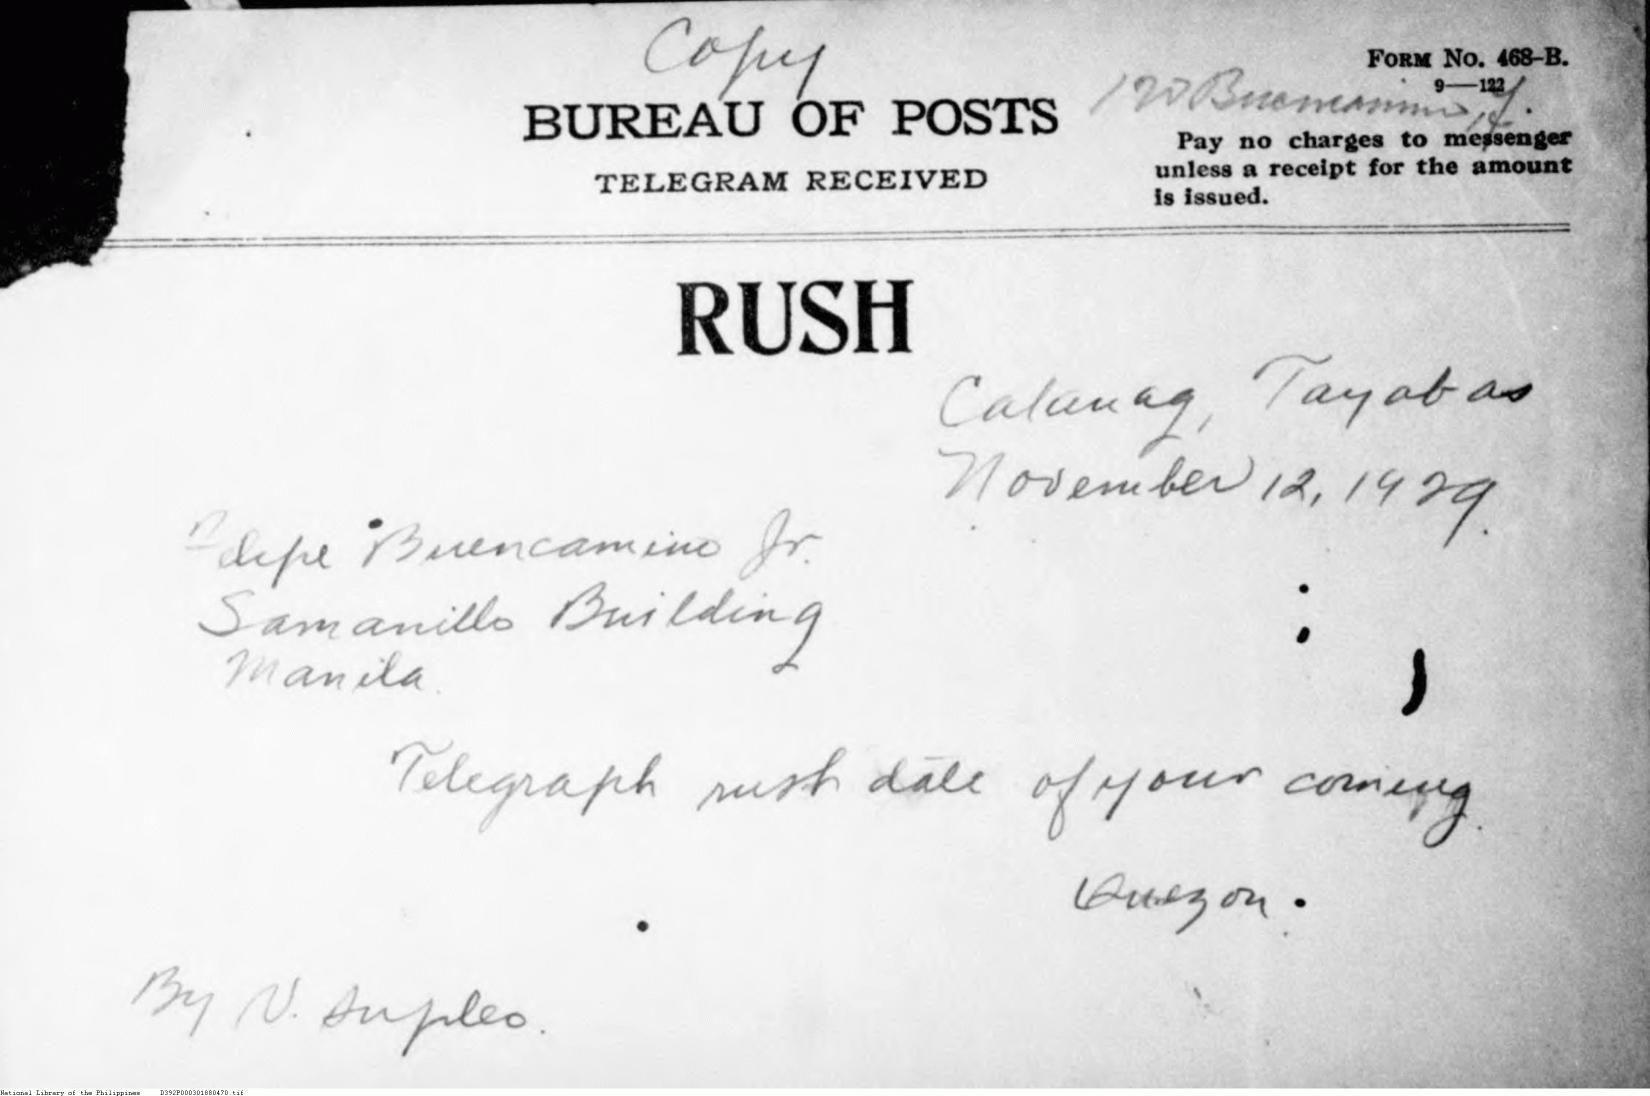 Copy
BUREAU OF POSTS
TELEGRAM RECEIVED
FORM NO. 468-B.
9—122
Pay no charges to messenger
unless a receipt for the amount
is issued.
RUSH
Calauag, Tayabas
November 12, 1929.
Felipe Buencamino Jr.
Samanillo Building
Manila.
Telegraph rush date of your coming.
Quezon.
By N. Supleo.
National Library of the Philippines D392P000301880470.tif